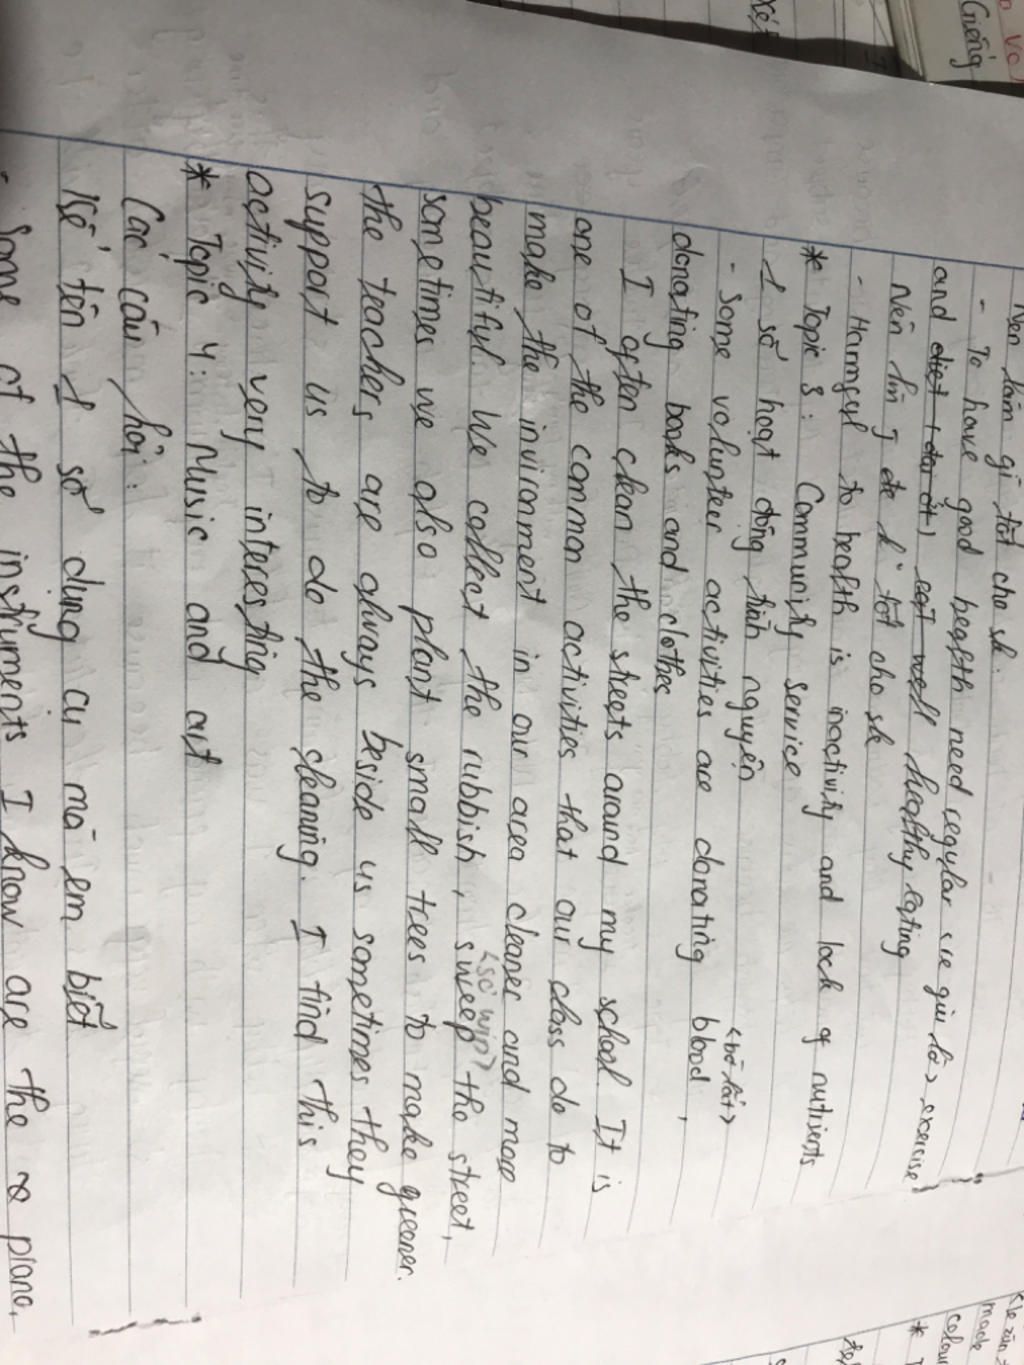 Nên làm gì tốt cho sk.
- To have good health need regular exercise
and healthy eating
Nên làm j để k tốt cho sk
- Harmful to health is inactivity and lack of nutrients
* Topic 3: Community service
1 số hoạt động tình nguyện
- Some volunteer activities are donating blood,
donating books and clothes
I often clean the streets around my school. It is
one of the common activities that our class do to
make the invironment in our area cleaner and more
beautiful. We collect the rubbish, sweep the street,
sometimes we also plant small trees to make greener.
the teachers are always beside us sometimes they
support us to do the cleaning. I find this
activity very interesting
* Topic 4: Music and art
Các câu hỏi:
Kể tên 1 số dụng cụ mà em biết
- Some of the instruments I know are the piano,
Giếng
made
colou